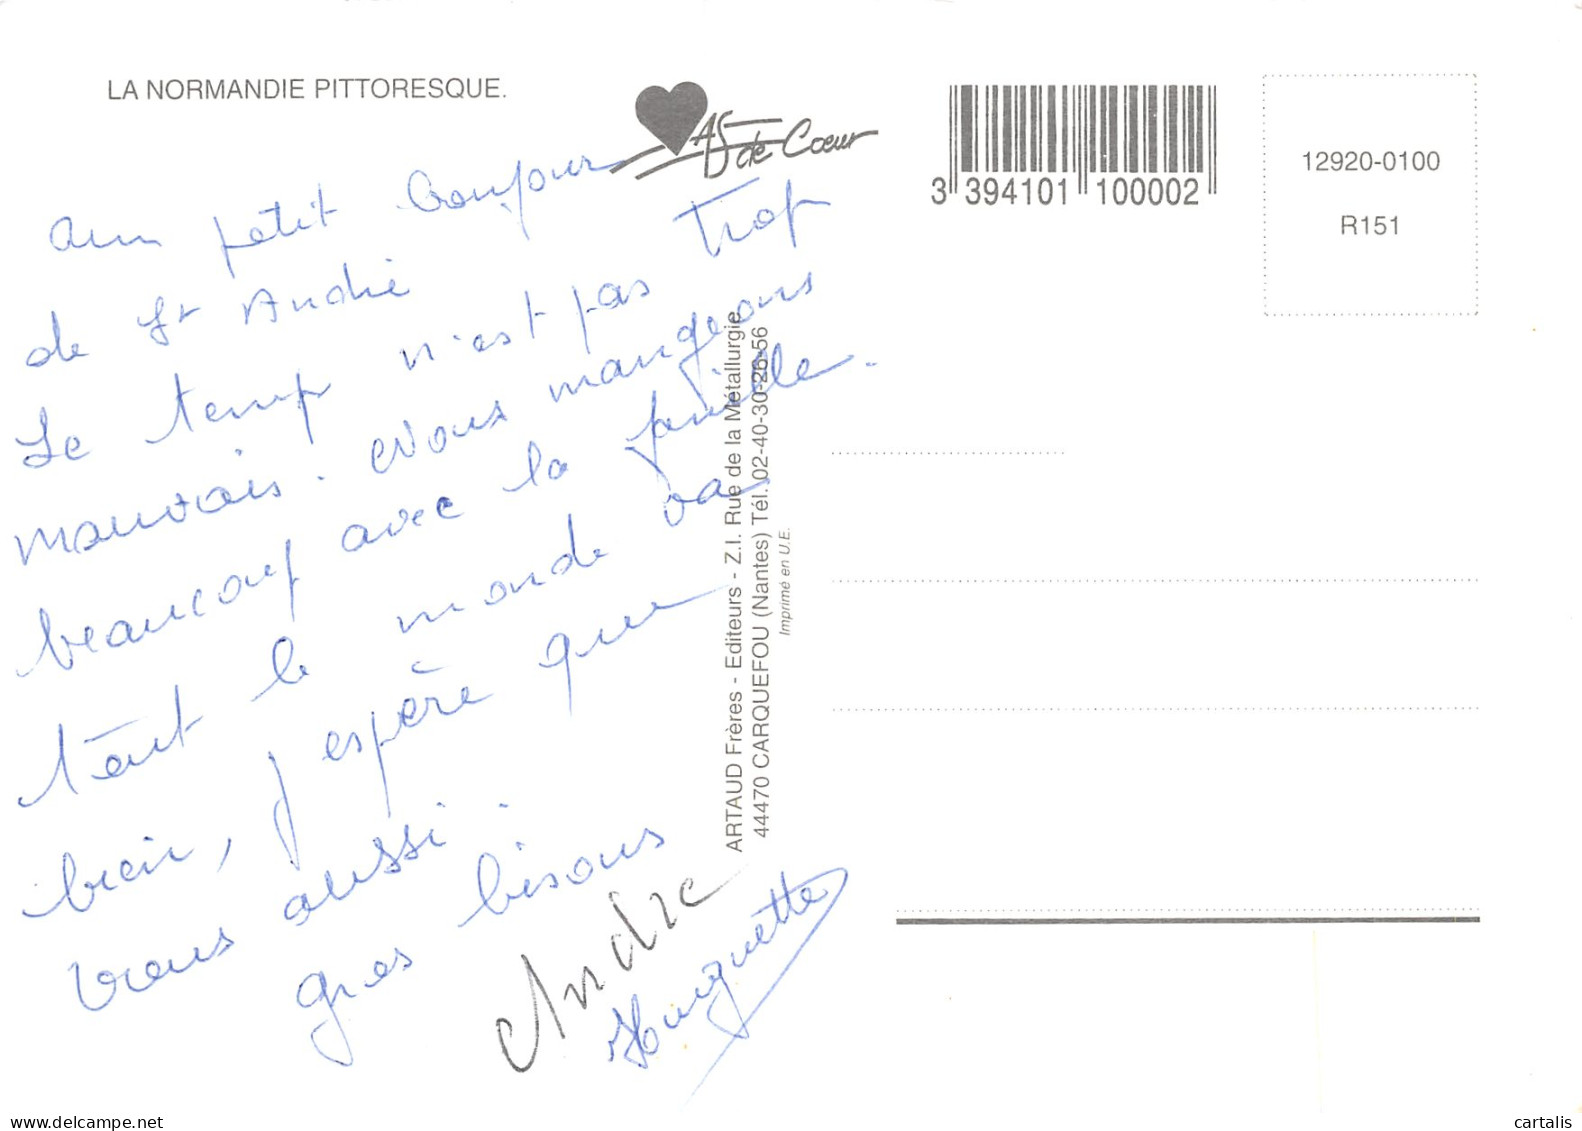 LA NORMANDIE PITTORESQUE.
As de Coeur
3 394101 100002
12920-0100
R151
un petit bonjour
de St André
Le temps n'est pas trop
mauvais. Nous mangeons
beaucoup avec la famille.
tout le monde va
bien, j'espère que
vous aussi.
gros bisous
André
Huguette
ARTAUD Frères - Editeurs - Z.I. Rue de la Métallurgie
44470 CARQUEFOU (Nantes) Tél. 02-40-30-26-56
Imprimé en U.E.
www.delcampe.net
cartalis